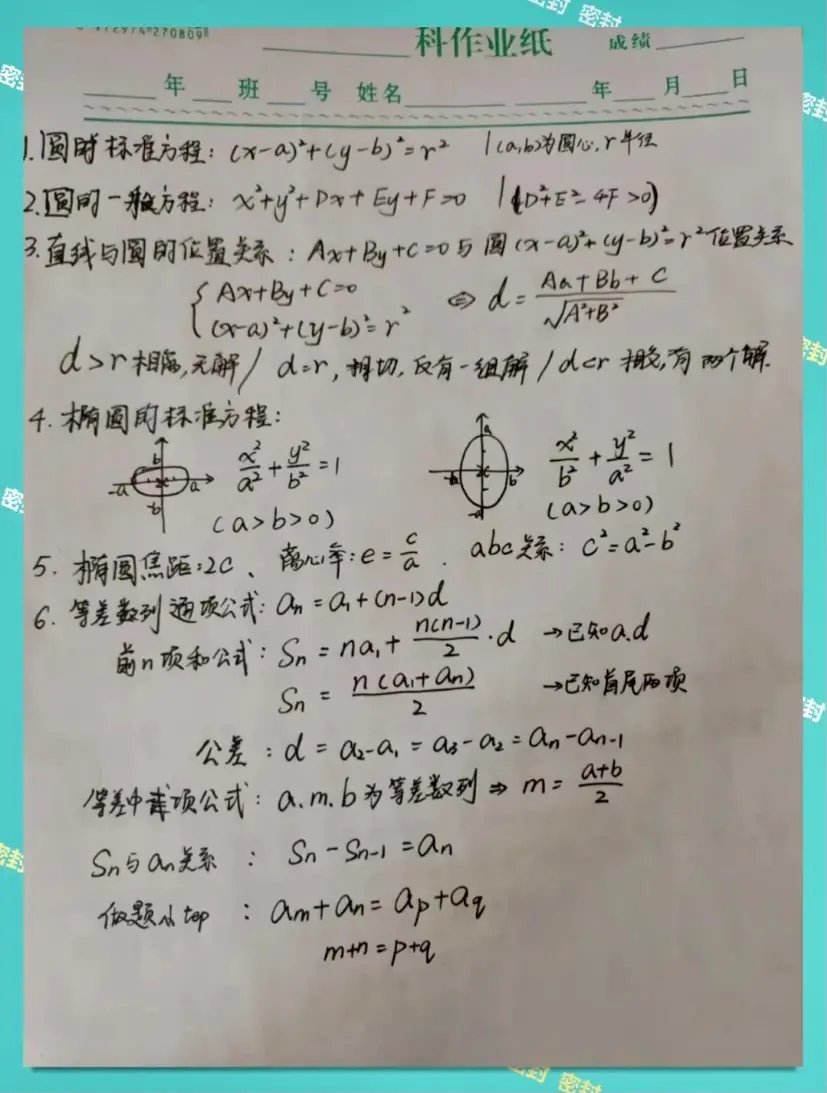 972974270809
科作业纸 成绩
年 班 号 姓名 年 月 日
1.圆的标准方程：(x-a)²+(y-b)²=r² |(a,b)为圆心,r半径
2.圆的一般方程：x²+y²+Dx+Ey+F=0 |(D²+E²-4F>0)
3.直线与圆的位置关系：Ax+By+C=0与圆(x-a)²+(y-b)²=r²位置关系
{Ax+By+C=0
(x-a)²+(y-b)²=r² ⇔ d=(Aa+Bb+C)/√(A²+B²)
d>r相离,无解/ d=r,相切,仅有一组解/d<r相交,有两个解.
4.椭圆的标准方程：
b -a a -b x²/a²+y²/b²=1 a b x²/b²+y²/a²=1
(a>b>0) (a>b>0)
5. 椭圆焦距:2c、离心率:e=c/a. abc关系：c²=a²-b²
6. 等差数列通项公式：an=a1+(n-1)d
前n项和公式：Sn=na1+n(n-1)/2·d →已知a.d
Sn=n(a1+an)/2 →已知首尾两项
公差：d=a2-a1=a3-a2=an-an-1
等差中项公式：a.m.b为等差数列⇒m=(a+b)/2
Sn与an关系：Sn-Sn-1=an
做题小top：am+an=ap+aq
m+n=p+q
密封 密封
密封
密封
密封
密封
密封
密封
密封
密封 密封